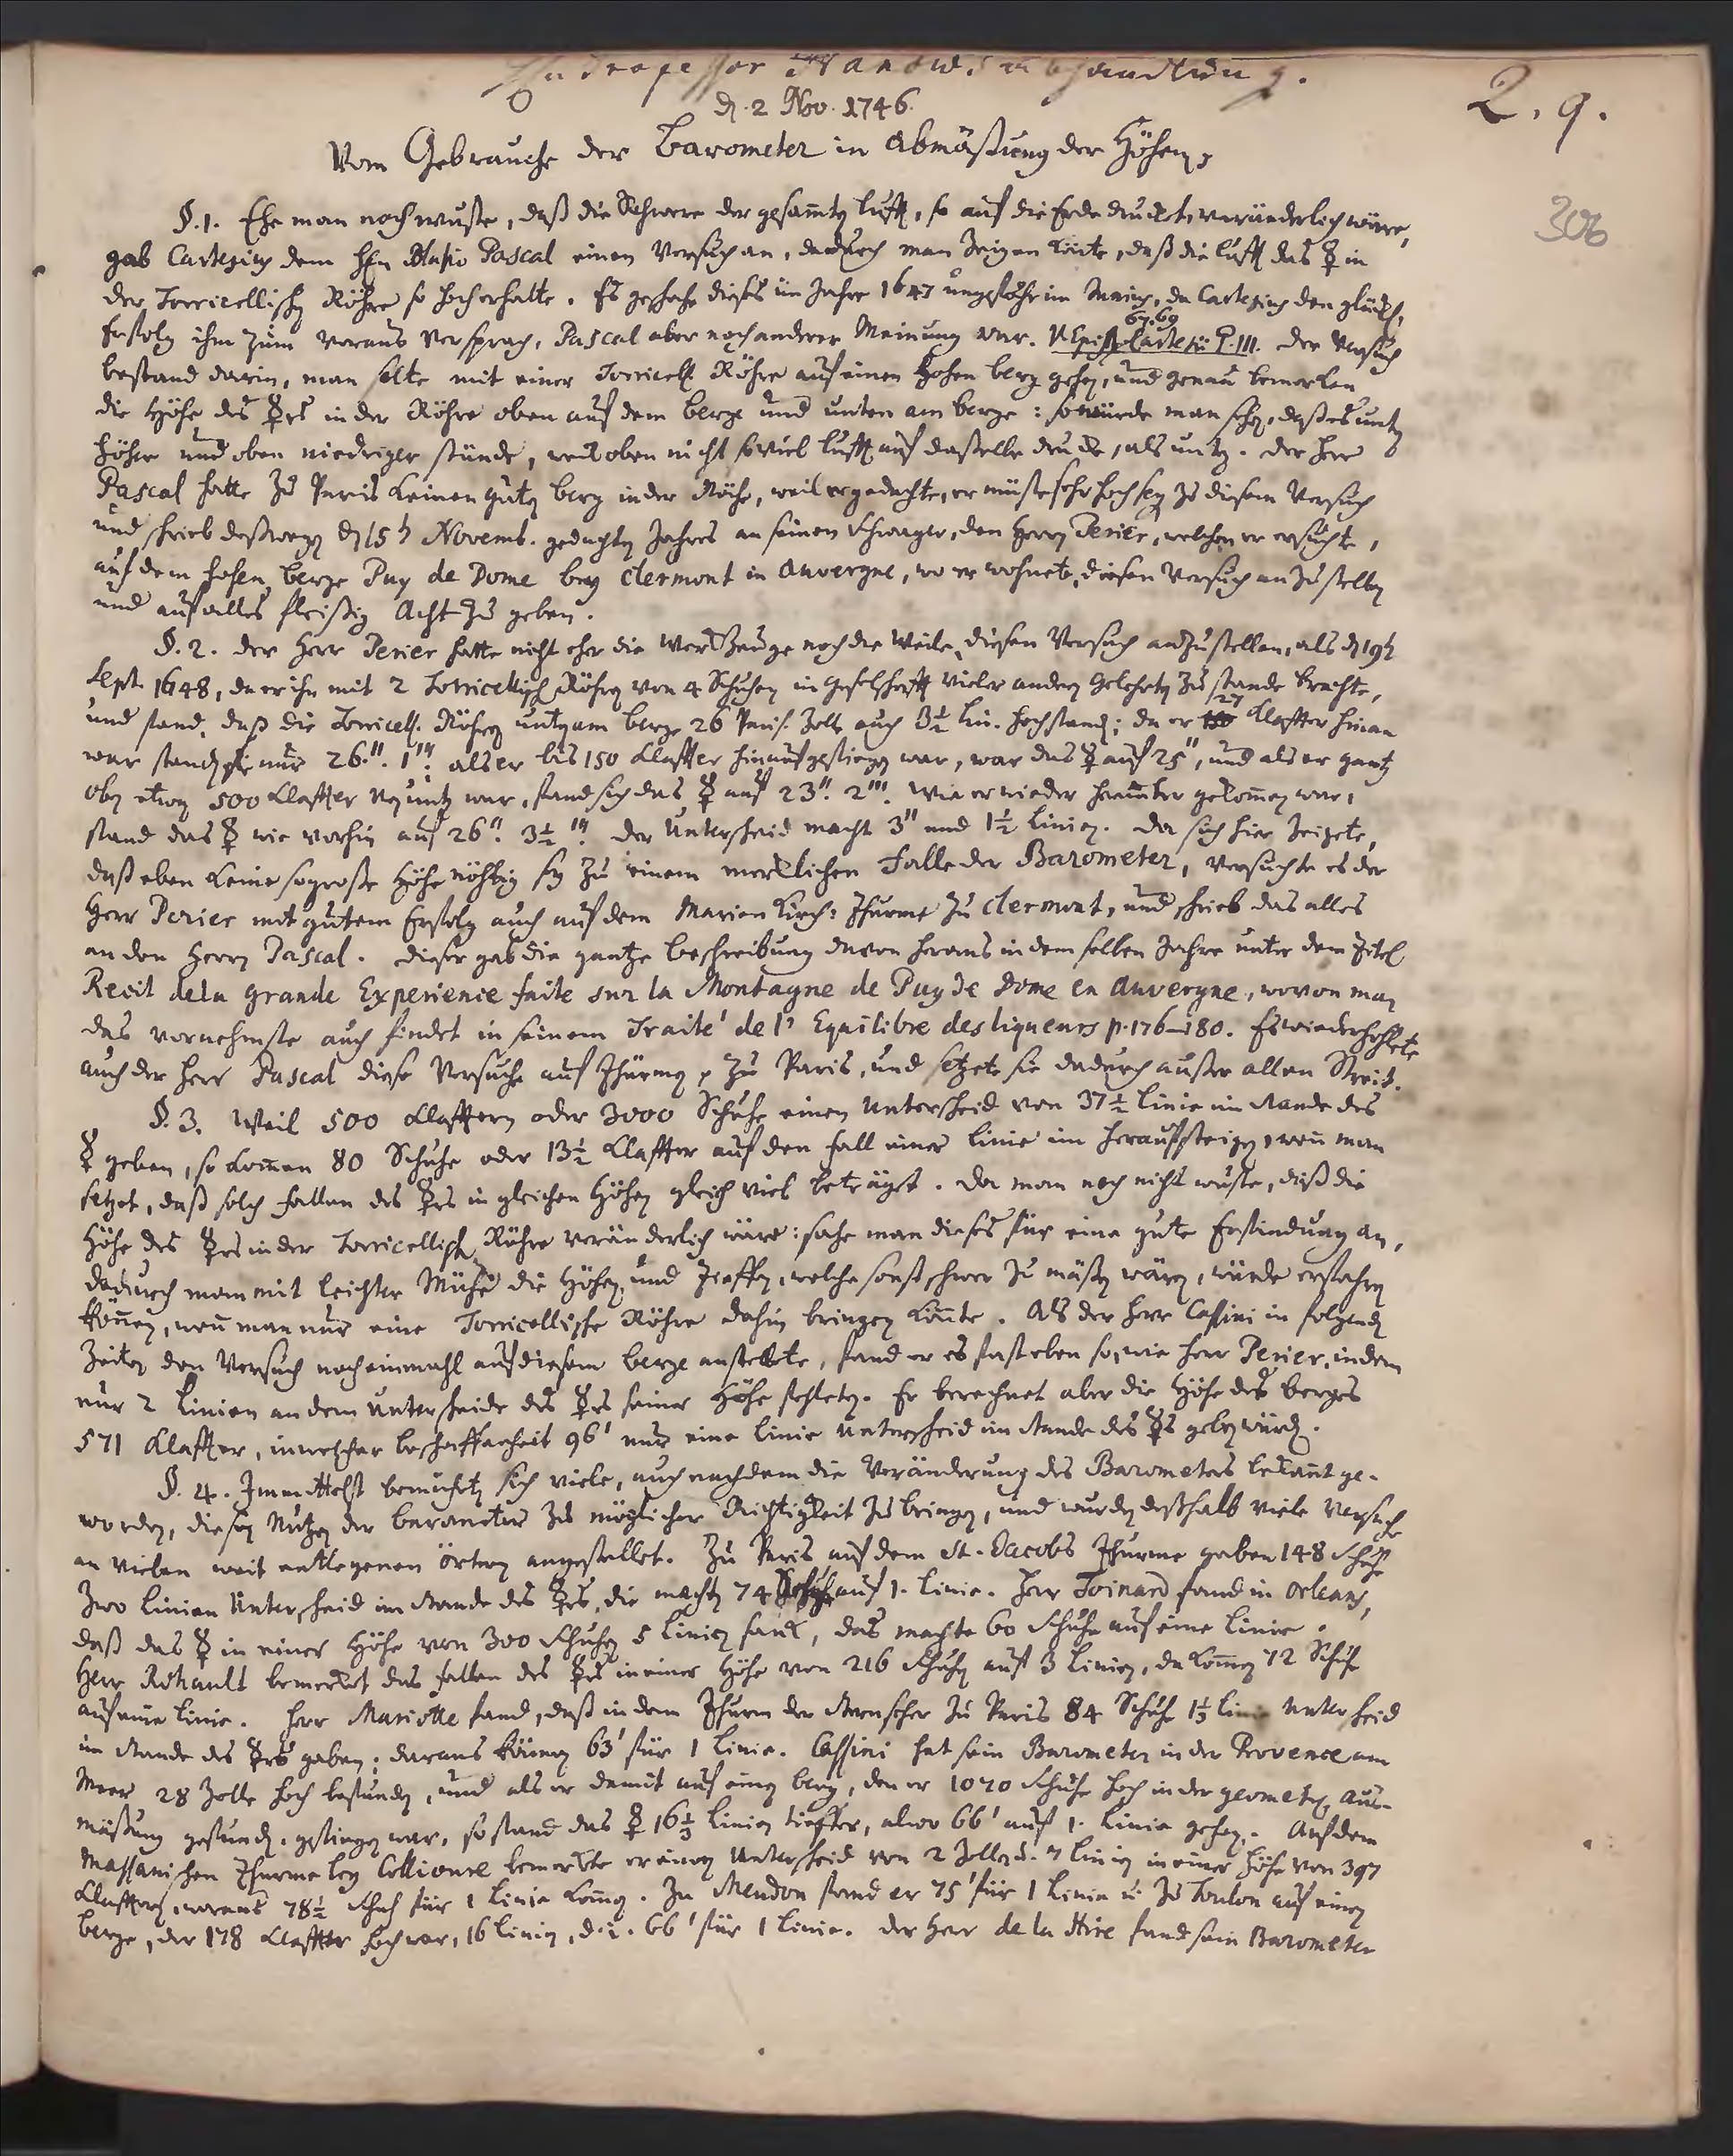 Professor Hanows abhandlung.
d. 2 Nov. 1746.
2. 9.
Vom Gebrauche der Barometer in Abmäßung der Höhen,
306
§. 1. Ehe man noch wuste, daß die Schwere der gesamten Lufft, so auf die Erde druckt, veränderlich wäre,
gab Cartesius dem Hln Blasio Pascal einen Versuch an, dadurch man zeigen könte, daß die Lufft das ☿ in
der Torricellischen Röhre so hoch erhalte. Es geschahe dieses im Jahre 1647 ungefähr im Mains, da Cartesius den glückl.
67. 69
Erfolg ihm zum Voraus versprach, Pascal aber noch anderer Meinung war. V. Epist. Cartesii P. III. Der Versuch
bestand darin, man solte mit einer Torricell. Röhre auf einen hohen berg gehen, und genau bemerken
die Höhe des ☿rs in der Röhre oben auf dem berge und unten am berge: so würde man sehen, daß es unten
höher und oben niedriger stünde, weil oben nicht soviel Lufft auf daßelbe drucke, als unten. Der Herr
Pascal hatte zu Paris keinen guten berg in der Nähe, weil er gedachte, er müste sehr hoch seyn zu diesem Versuch
und schrieb deßwegen d 15t Novemb. gedachten Jahres an seinen Schwager, den Herrn Perier, welchen er ersuchte,
auf dem hohen berge Puy de Dome bey Clermont in Auvergne, wo er wohnete, diesen Versuch anzustellen
und auf alles fleißig Acht zu geben.
§. 2. Der Herr Perier hatte nicht eher die Werkzeuge noch die Weile, diesen Versuch anzustellen, als d 19t
Sept. 1648, da er ihn mit 2 Torricellisch Röhren von 4 Schuhen in Gesellschafft vieler andern Gelehrten zu stande brachte,
27
und fand, daß die Torricell. Röhren unten am berge 26 Paris. Zolle auch 3½ Lin. hoch standen; da er Klaffter hinan
war standen sie nur 26." 1"': als er bis 150 Klaffter hinauf gestiegen war, war das ☿ auf 25", und als er gantz
oben etwa 500 Klaffter von unten war, fand sich das ☿ auf 23". 2"'. Wie er wieder herunter gekommen war,
stand das ☿ wie vorhin auf 26". 3½"'. Der Unterscheid macht 3" und 1½ Linien. Da sich hier zeigete,
daß eben keine so große Höhe nöthig sey zu einem merklichen Falle der Barometer, versuchte es der
Herr Perier mit gutem Erfolg auch auf dem Marien Kirch-Thurme zu Clermont, und schrieb das alles
an den Herrn Pascal. Dieser gab die gantze beschreibung davon heraus in dem selben Jahre unter dem Titel
Recit dela grande Experience faite sur la Montagne de Puy de Dome en Auvergne, wovon man
das vornehmste auch findet in seinem Traité de l' Equilibre des liqueurs p. 176-180. Es wiederhohlete
auch der Herr Pascal diese Versuche auf Thürmen zu Paris, und setzete sie dadurch außer allen Streit.
§. 3. Weil 500 Klafftern oder 3000 Schuhe einen Unterscheid von 37½ Linie im stande des
☿ geben, so kommen 80 Schuhe oder 13½ Klaffter auf den fall einer Linie im heraufsteigen, wenn man
setzet, daß solch fallen des ☿rs in gleichen Höhen gleich viel beträget. Da man noch nicht wuste, daß die
Höhe des ☿rs in der Torricellisch Röhre veränderlich wäre: sahe man dieses für eine gute Erfindung an,
dadurch man mit leichter Mühe die Höhen und Tieffen, welche sonst schwer zu mäßen wären, würde erfahren
können, wenn man nur eine Torricellische Röhre dahin bringen könnte. Als der Herr Cassini in folgenden
Zeiten den Versuch noch einmahl auf diesem berge anstellete, fand er es fast eben so, wie Herr Perier, indem
nur 2 Linien an dem Unterscheide des ☿rs seiner Höhe fehleten. Er berechnet aber die Höhe des berges
571 Klaffter, in welcher beschaffenheit 96' nur eine Linie Unterscheid im stande des ☿s geben würden.
§. 4. Immittelst bemüheten sich viele, auch nachdem die Veränderung des Barometers bekannt ge-
worden, diesen Nutzen der barometer zu möglicher Richtigkeit zu bringen, und wurden deßhalb viele Versuche
an vielen weit entlegenen örtern angestellet. Zu Paris auf dem St. Jacobs Thurme gaben 148 Schuhe
zwo Linien Unterscheid im stande des ☿rs, die machen 74 Schuh auf 1. Linie. Herr Toinard fand in Orleans,
daß das ☿ in einer Höhe von 300 Schuhen 5 Linien sank, das machte 60 Schuhe auf eine Linie.
Herr Rohault bemerket das fallen des ☿rs in einer Höhe von 216 Schuhen auf 3 Linien, da kommen 72 Schuhe
auf eine Linie. Herr Mariotte fand, daß in dem Thurm der Sternseher zu Paris 84 Schuhe 1⅓ Linie Unterscheid
im stande des ☿rs gaben; daraus können 63' für 1 Linie. Cassini hat sein Barometer in der Provence am
Meer 28 Zolle hoch befunden, und als er damit auf einen berg, den er 1070 Schuhe hoch in der geometr. Aus-
mäßung gefunden, gestiegen war, so stand das ☿ 16⅓ Linien tieffer, alwo 66' auf 1. Linie gehen. Auf dem
Massanischen Thurme bey Collioure bemerkte er einen Unterscheid von 2 Zollen u. 7 Linien in einer Höhe von 397
Klafftern, woraus 78½ Schuh für 1 Linie kommen. Zu Meudon fand er 75' für 1 Linie u. zu Toulon auf einem
berge, der 178 Klaffter hoch war, 16 Linien, d. i. 66' für 1 Linie. Der Herr de la Hire fand sein Barometer